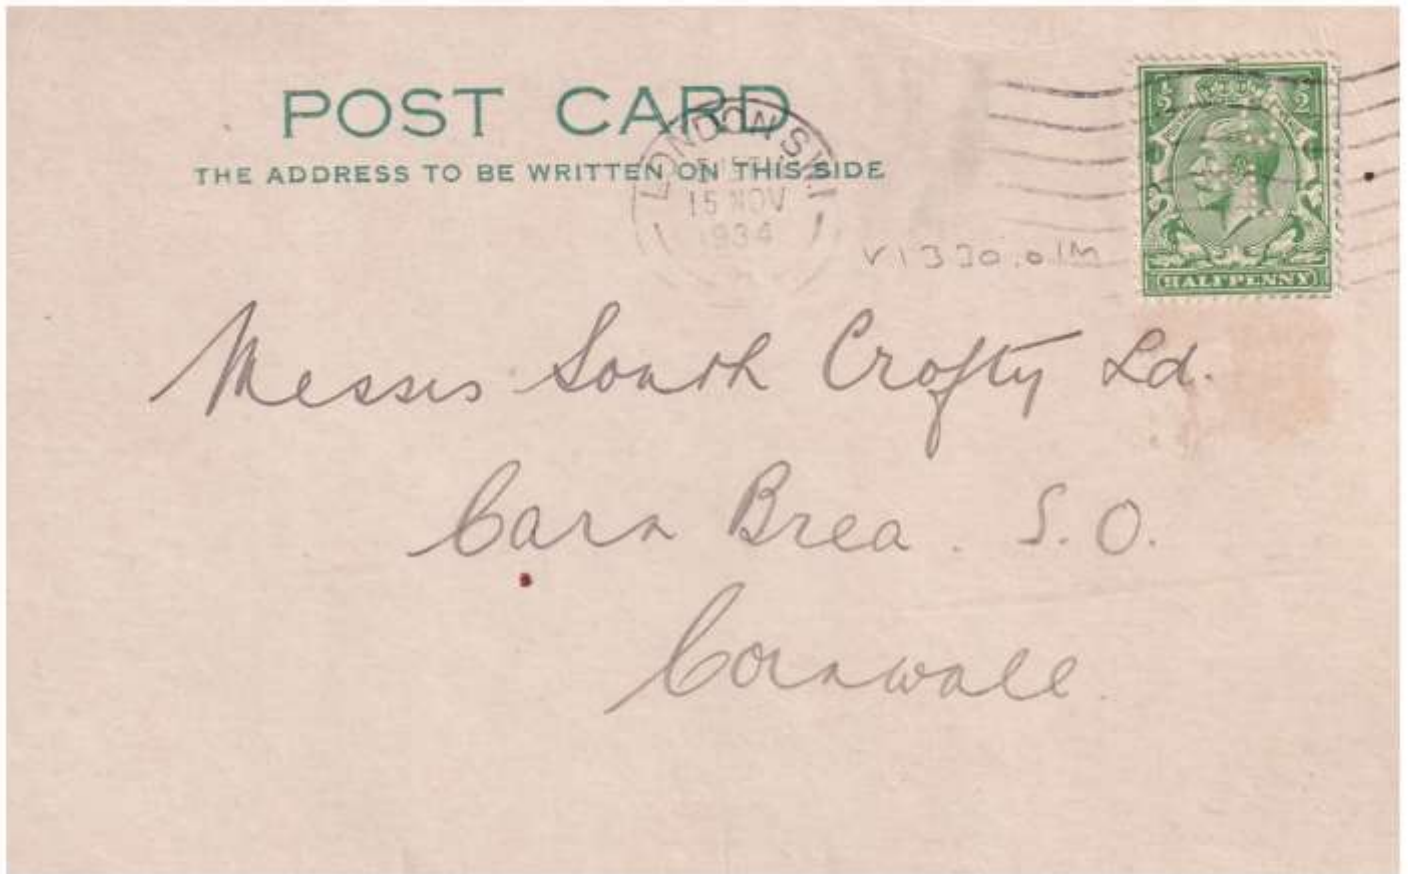 POST CARD
THE ADDRESS TO BE WRITTEN ON THIS SIDE
LONDON S.W.1
15 NOV
1934
½ ½
HALFPENNY
V1330.01M
Messrs South Crofty Ld.
Carn Brea. S.O.
Cornwall.